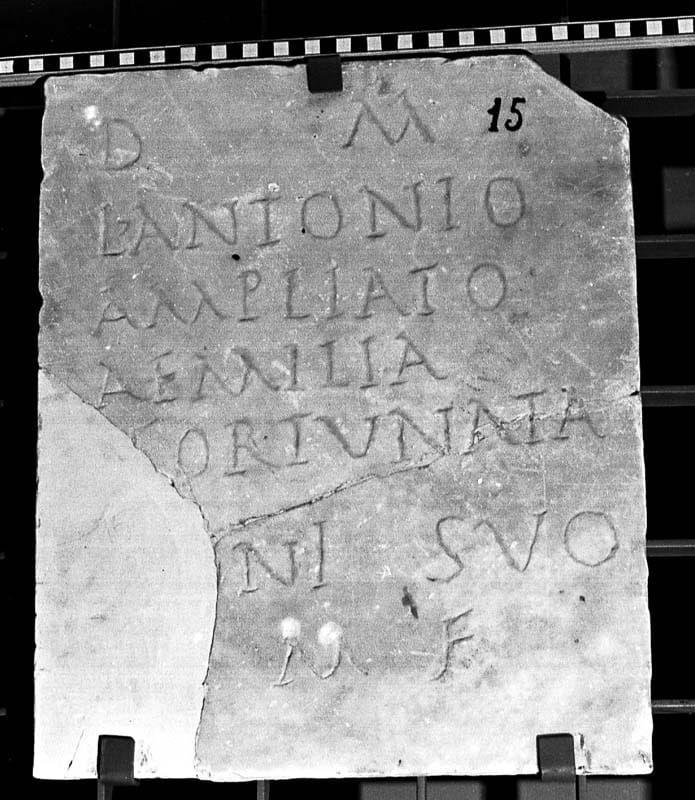 D M 15
L ANTONIO
AMPLIATO
AEMILIA
FORTVNATA
NI SVO
M F